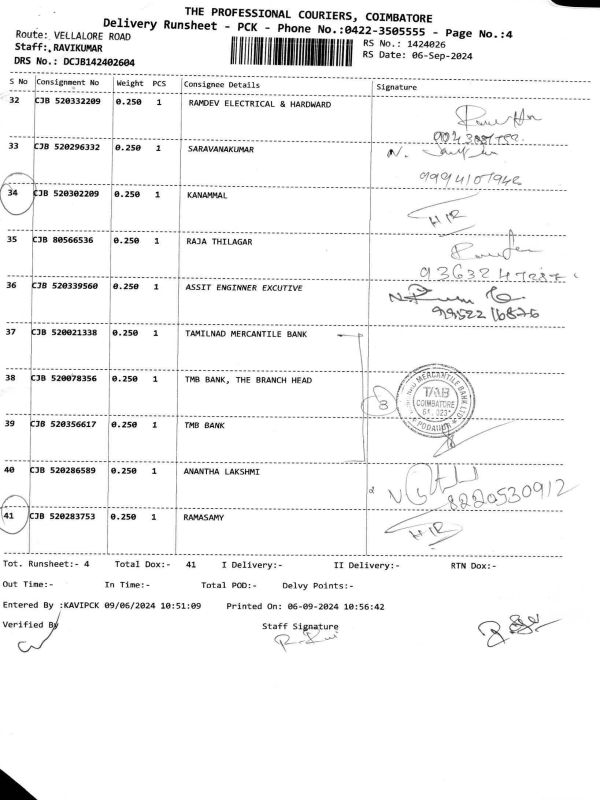 THE PROFESSIONAL COURIERS, COIMBATORE
Delivery Runsheet - PCK - Phone No.:0422-3505555 - Page No.:4
Route: VELLALORE ROAD
RS No.: 1424026
Staff: RAVIKUMAR
RS Date: 06-Sep-2024
DRS No.: DCJB142402604
S No Consignment No Weight PCS Consignee Details Signature
32 CJB 520332209 0.250 1 RAMDEV ELECTRICAL & HARDWARD
33 CJB 520296332 0.250 1 SARAVANAKUMAR
9994107946
34 CJB 520302209 0.250 1 KANAMMAL
35 CJB 80566536 0.250 1 RAJA THILAGAR
36 CJB 520339560 0.250 1 ASSIT ENGINNER EXCUTIVE
37 CJB 520021338 0.250 1 TAMILNAD MERCANTILE BANK
38 CJB 520078356 0.250 1 TMB BANK, THE BRANCH HEAD
3
MERCANTILE BANK LTD
TMB
COIMBATORE
PODANUR
39 CJB 520356617 0.250 1 TMB BANK
40 CJB 520286589 0.250 1 ANANTHA LAKSHMI
8220530912
41 CJB 520283753 0.250 1 RAMASAMY
Tot. Runsheet:- 4 Total Dox:- 41 I Delivery:- II Delivery:- RTN Dox:-
Out Time:- In Time:- Total POD:- Delvy Points:-
Entered By :KAVIPCK 09/06/2024 10:51:09 Printed On: 06-09-2024 10:56:42
Verified By Staff Signature